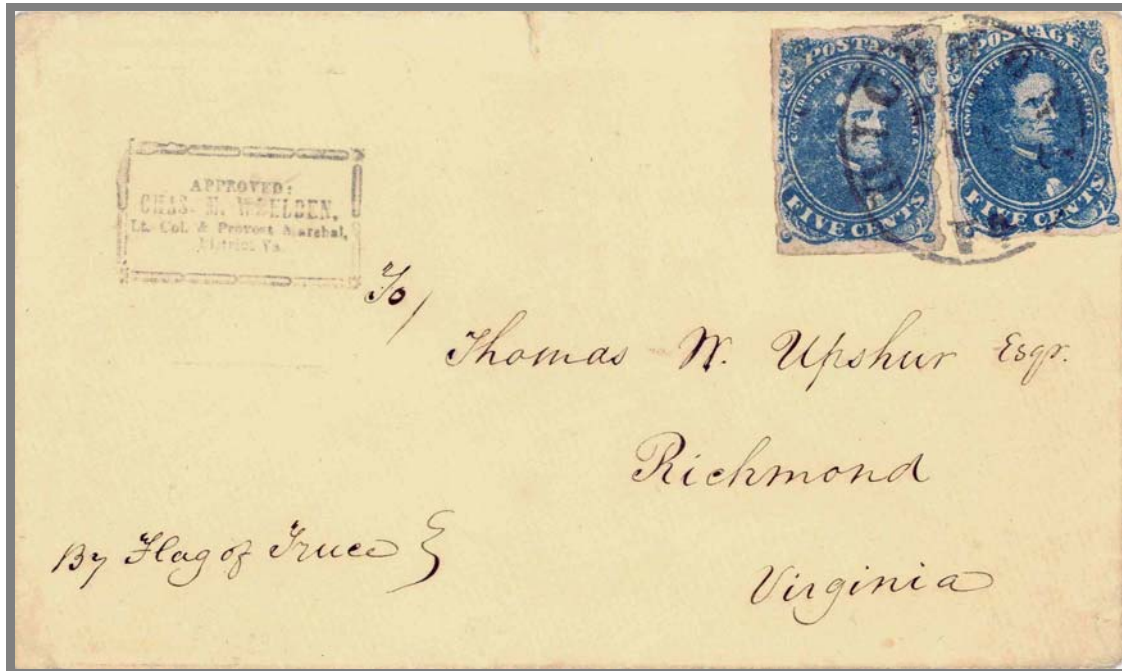 POSTAGE
CONFEDERATE STATES OF AMERICA
FIVE CENTS
POSTAGE
CONFEDERATE STATES OF AMERICA
FIVE CENTS
VA.
APPROVED:
CHAS. M. WHELDEN,
Lt. Col. & Provost Marshal,
District Va.
To/
Thomas W. Upshur Esqr.
Richmond
By Flag of Truce
Virginia